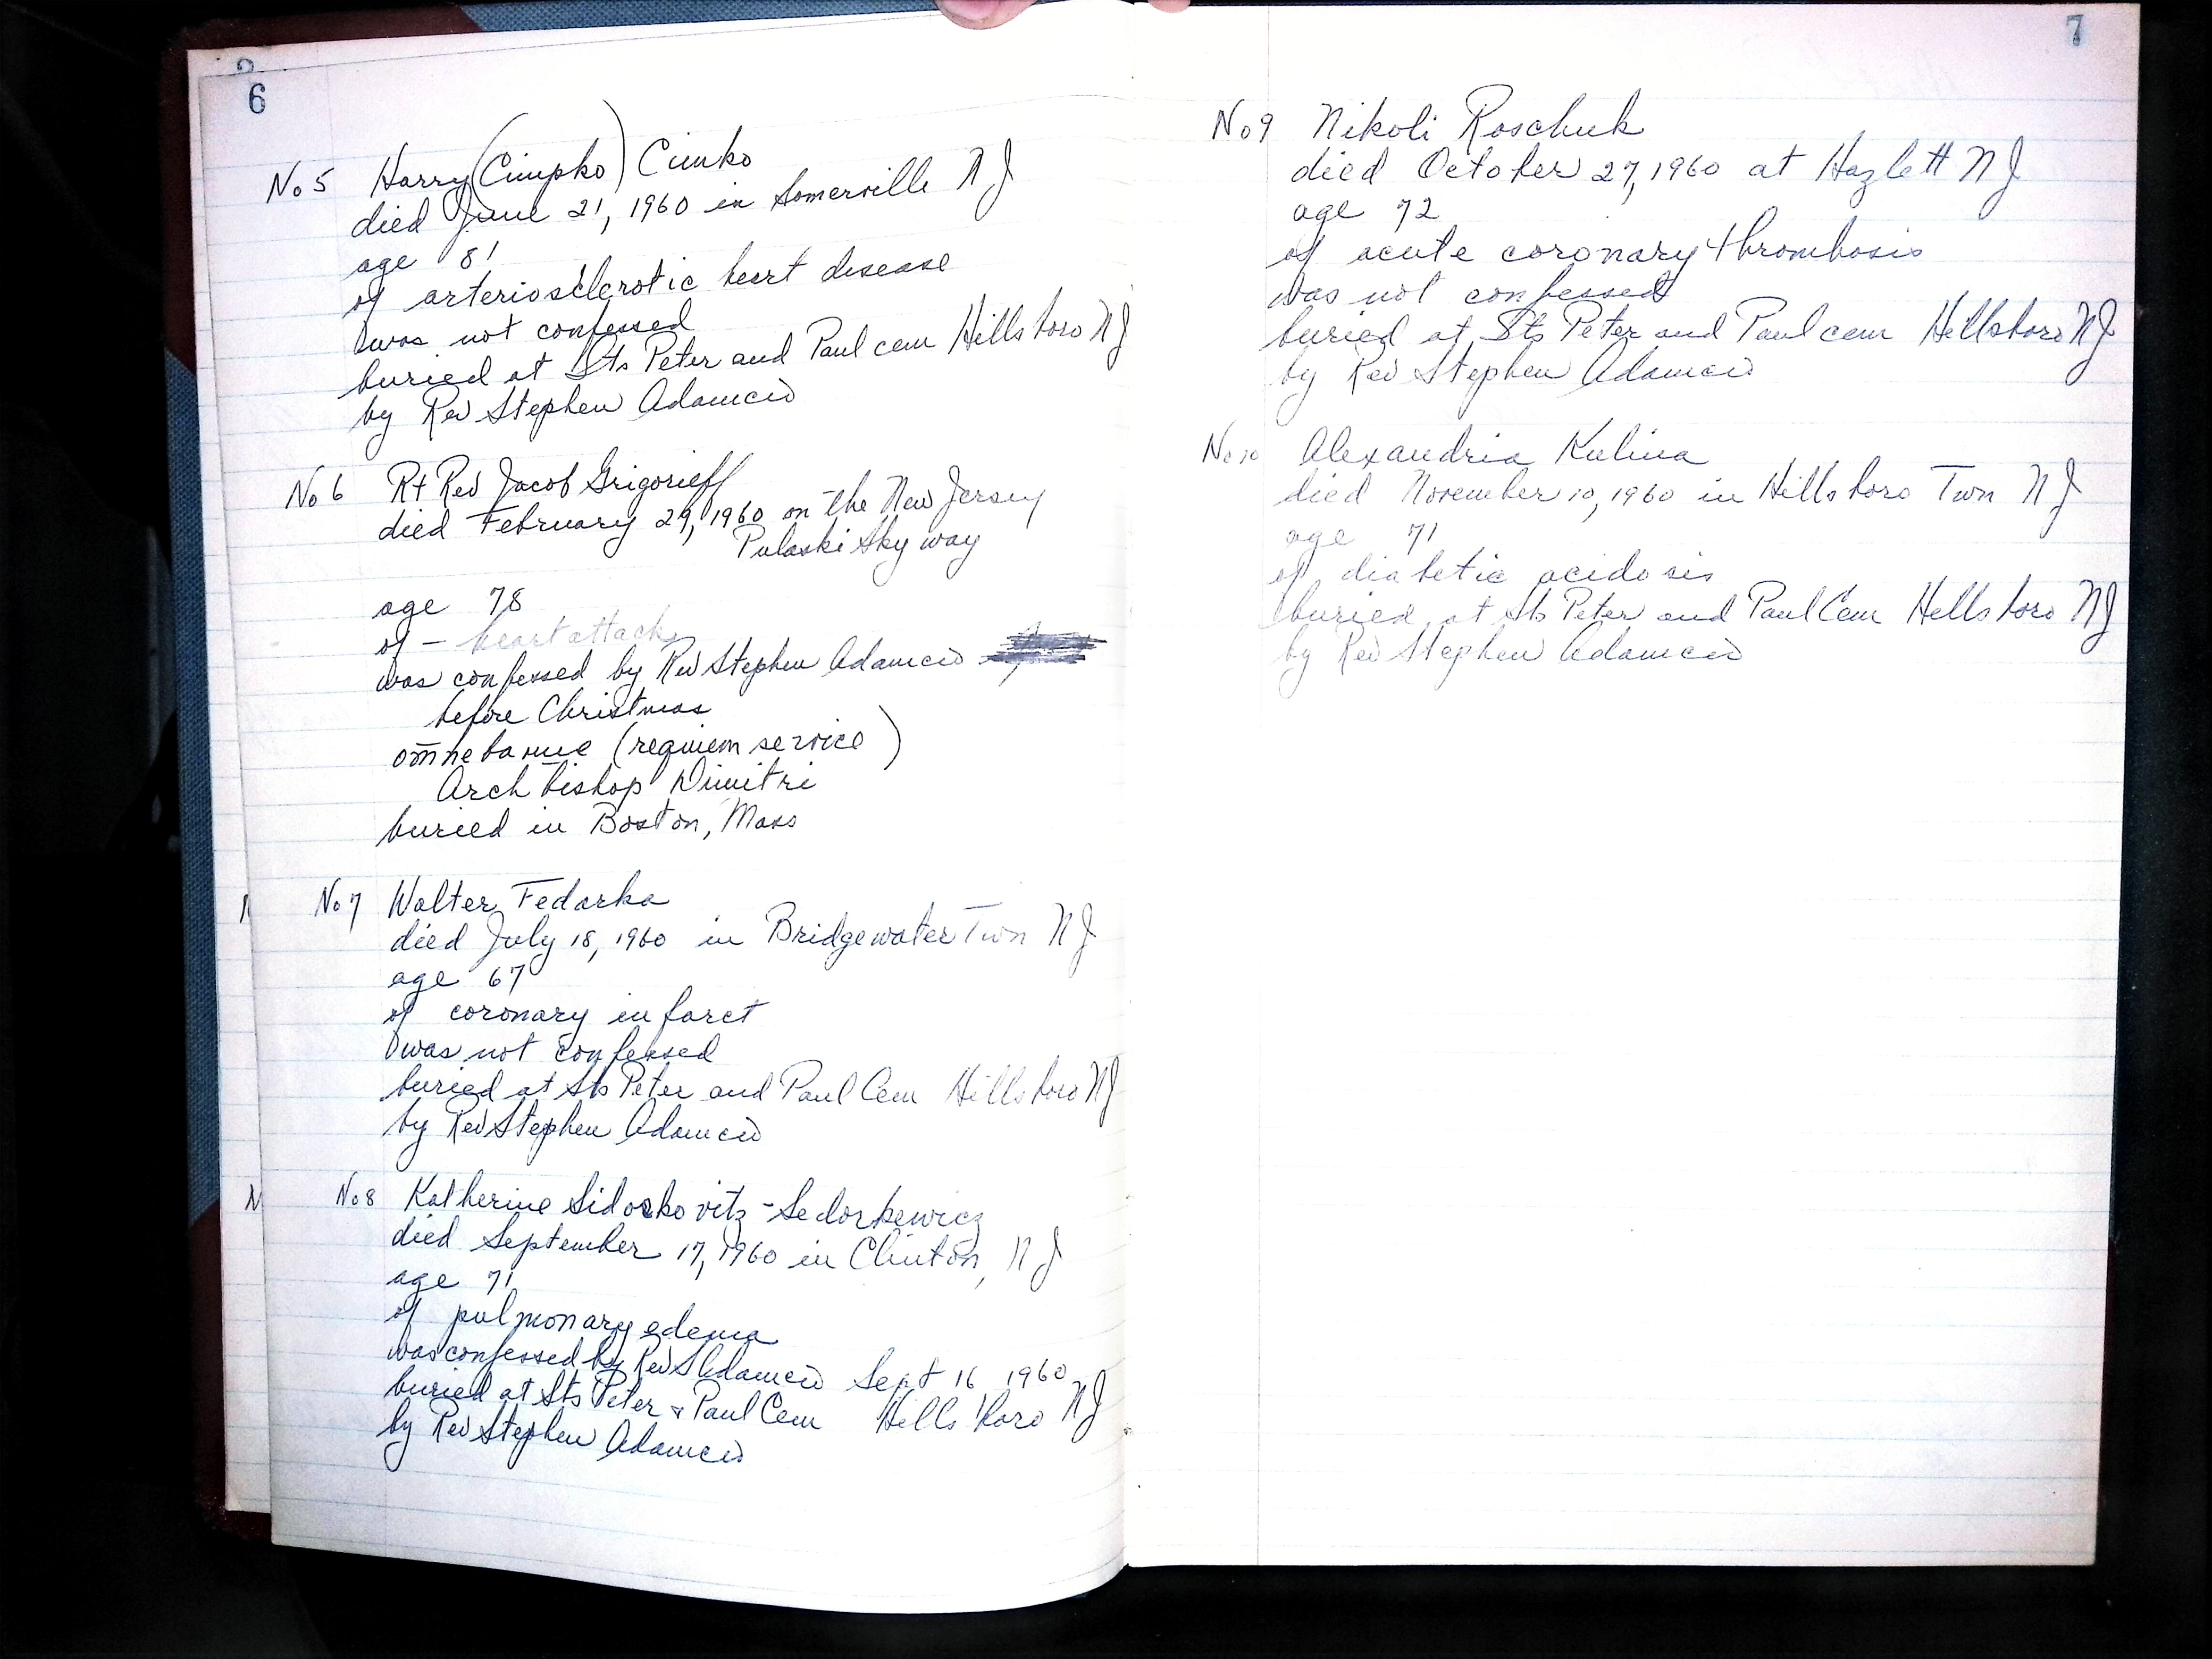 2
6
No 5 Harry (Cimpko) Cimko
died June 21, 1960 in Somerville NJ
age 81
of arteriosclerotic heart disease
was not confessed
buried at Sts Peter and Paul cem Hillsboro NJ
by Rev Stephen Adamcio
No 6 Rt Rev Jacob Grigorieff
died February 29, 1960 on the New Jersey
Pulaski Sky way
age 78
of - heart attack
was confessed by Rev Stephen Adamcio
before Christmas
(requiem service)
Arch bishop Dimitri
buried in Boston, Mass
No 7 Walter Fedorka
died July 18, 1960 in Bridgewater Twn NJ
age 67
of coronary infarct
was not confessed
buried at Sts Peter and Paul Cem Hillsboro NJ
by Rev Stephen Adamcio
No 8 Katherine Sidorkovitz - Sedorkewicz
died September 17, 1960 in Clinton, NJ
age 71
of pulmonary edema
was confessed by Rev S Adamcio Sept 16 1960
buried at Sts Peter & Paul Cem Hillsboro NJ
by Rev Stephen Adamcio
7
No 9 Nikoli Roschuk
died October 27, 1960 at Hazlett NJ
age 72
of acute coronary thrombosis
was not confessed
buried at Sts Peter and Paul cem Hillsboro NJ
by Rev Stephen Adamcio
No 10 Alexandria Kulina
died November 10, 1960 in Hillsboro Twn NJ
age 71
of diabetic acidosis
buried at Sts Peter and Paul Cem Hillsboro NJ
by Rev Stephen Adamcio